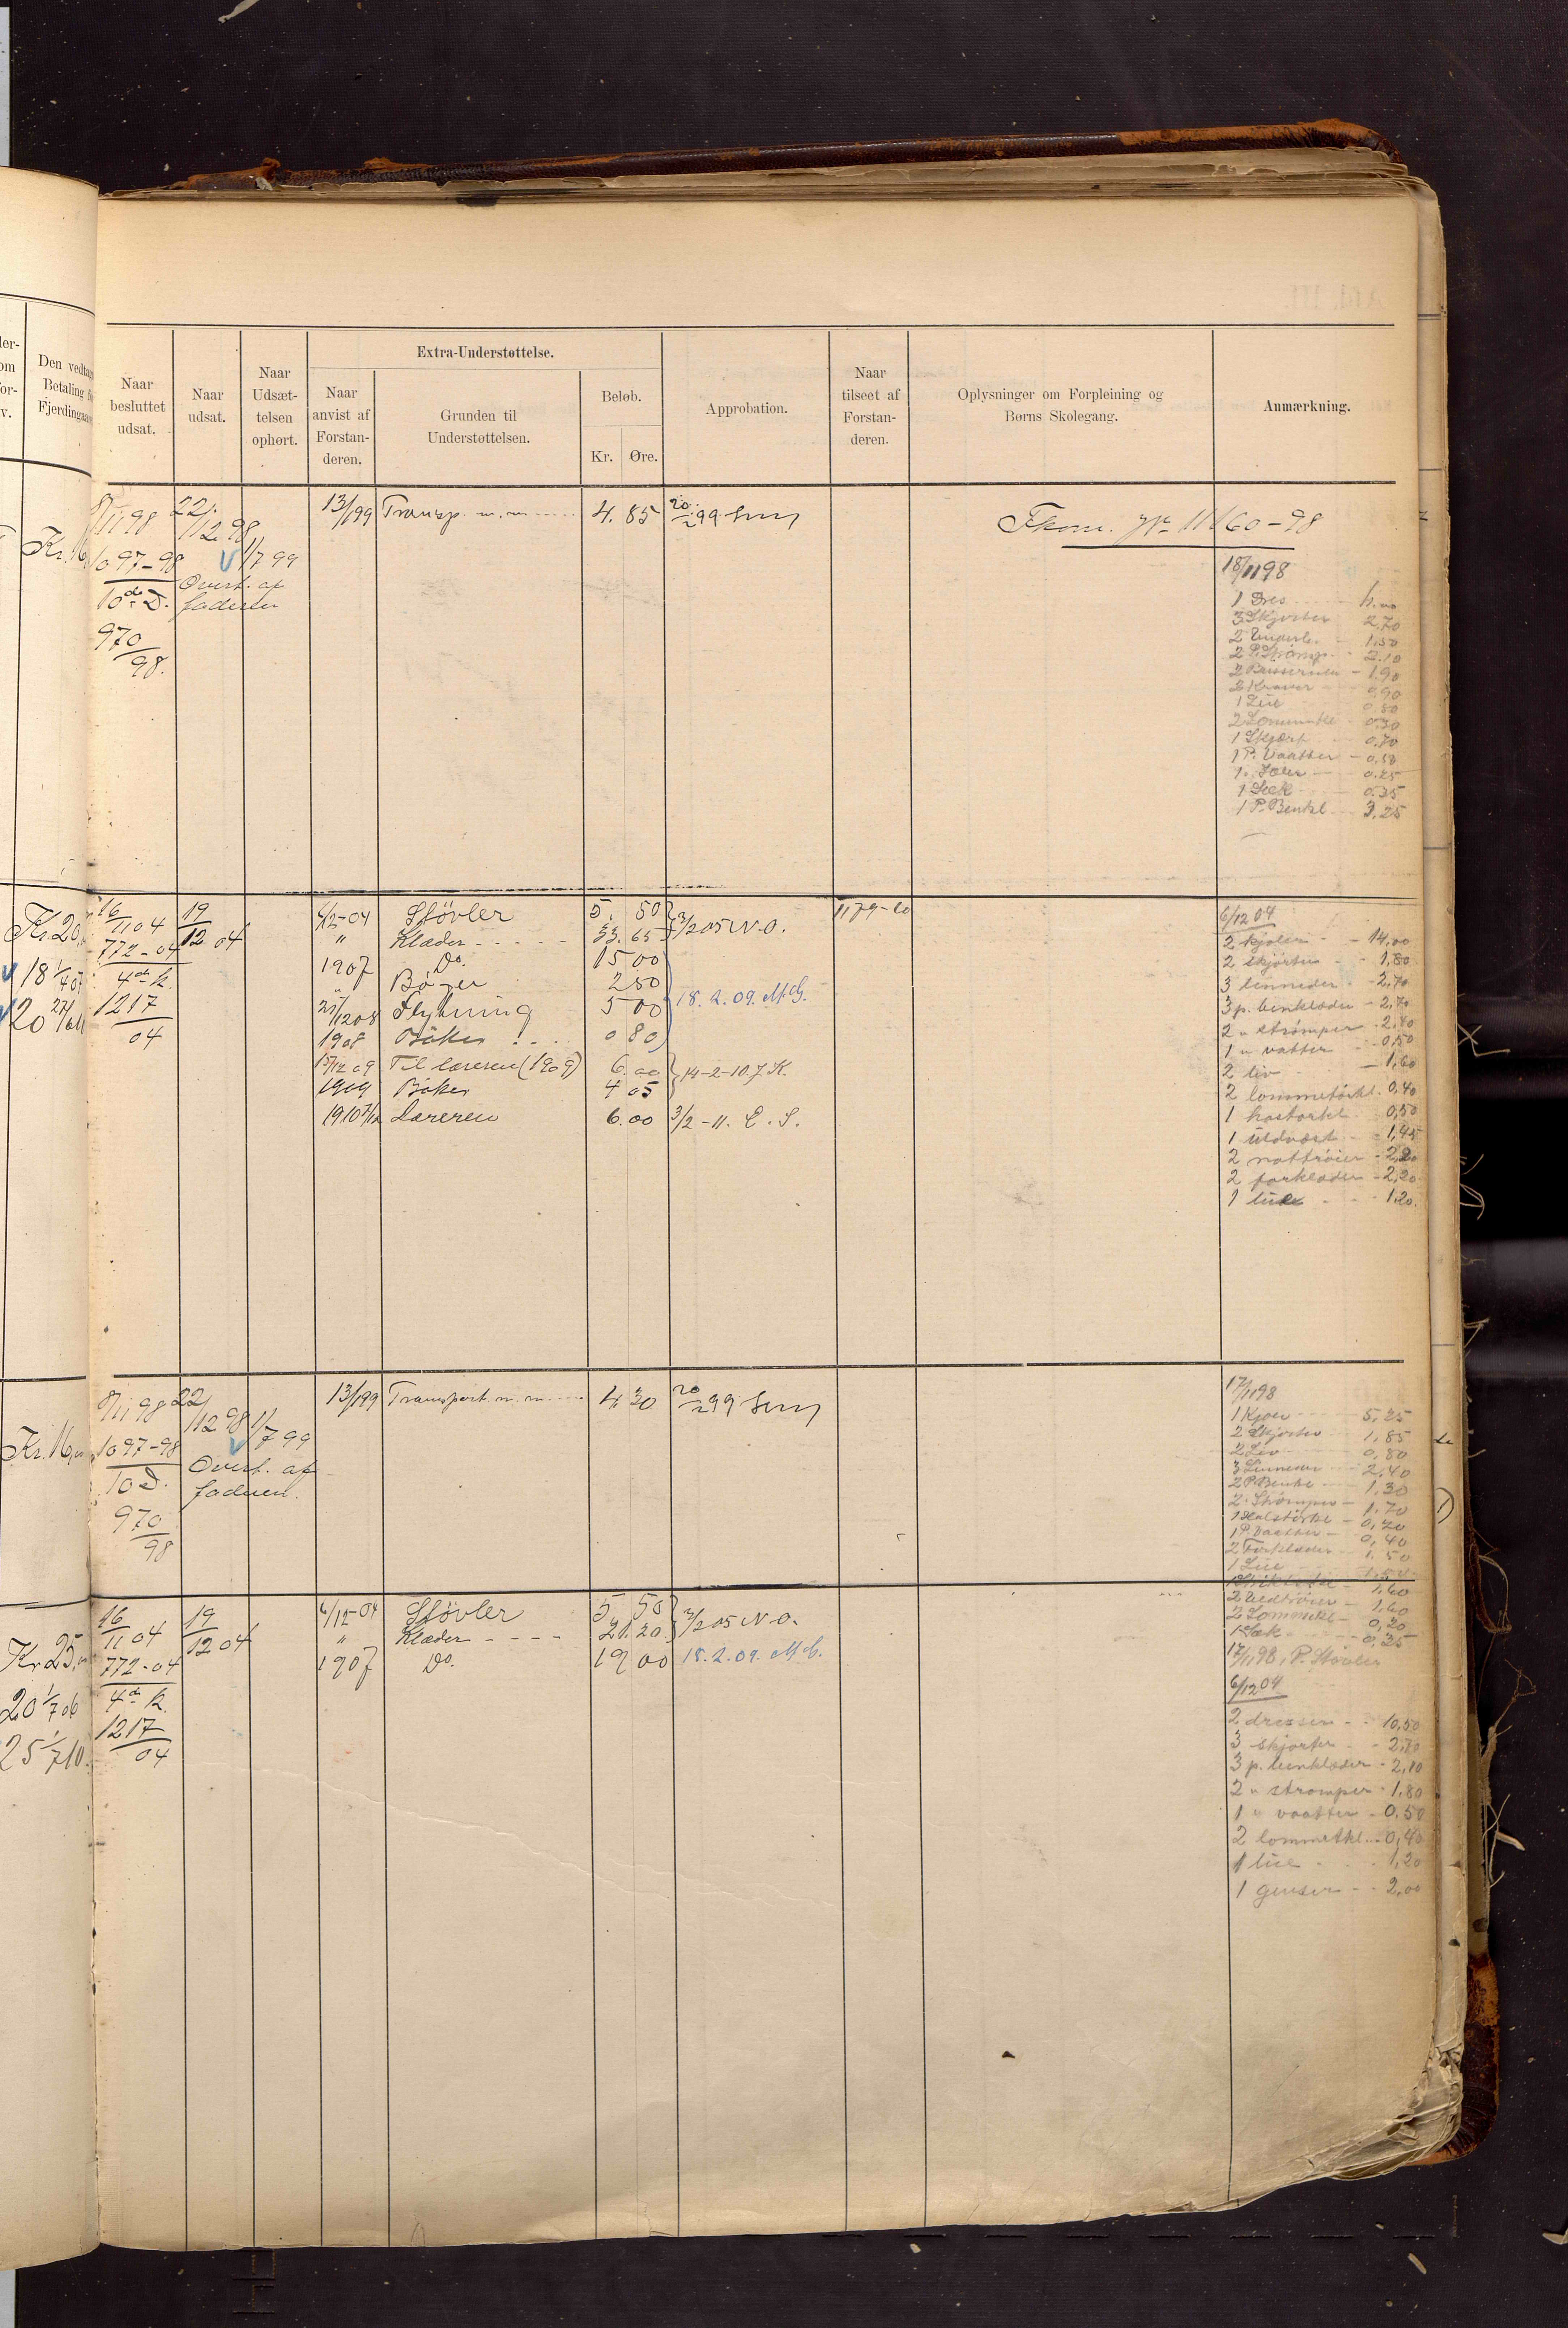 Den vedtagne
Betaling for
Fjerdingaaret
Naar
besluttet
udsat.
Naar
udsat.
Naar
Udsæt-
telsen
ophørt.
Extra-Understøttelse.
Naar
anvist af
Forstan-
deren.
Grunden til
Understøttelsen.
Beløb.
Kr.
Øre.
Approbation.
Naar
tilseet af
Forstan-
deren.
Oplysninger om Forpleining og
Børns Skolegang.
Anmærkning.
Kr. 16
8/11 98
1097-98
10de D.
970/98.
22/12 98
1/7 99
Overt. af
faderen
13/1 99 Transp. m. m. 4. 85 20/2 99
No 11160-98
18/11 98
1 Dres
3 Skjorter 2,70
2 Underl. 1,50
2 P. Strømp. 2.10
2 1.90
2 Kraver 0,90
1 Lue 0.80
2 Lommetkl 0.30
1 Skjært 0.70
1 P. Vaatter 0,50
0.25
1 Sæk 0.35
1 P. Benkl 3.25
Kr. 20
18 1/4 07
16/11 04
772-04
4de k.
1217/04
19/12 04
6/12-04 Støvler 5. 50
" Klæder 33. 65
3/2 05 N.O.
1907 Do. 15 00
" Bøger 2 50
25/12 08 Flytning 5 00
1908 Bøker 0 80
18.2.09. M.G.
15/12 09 Til læreren (1909) 6.00
1909 Bøker 4 05
14-2-10. J.K.
1910 7/12 Læreren 6.00 3/2-11. E. S.
11/9-10
6/12 04
2 kjoler 14,00
2 skjørter 1,80
3 linneder 2,70
3 p. benklæder 2,70
2 " strømper 2.40
1 " vatter 0,50
2 liv 1,60
2 lommetørkl. 0,40
1 hastørkl. 0,50
1 uldvæst 1,45
2 nattrøier 2,20
2 forklæder 2,20
1 lue 1,20.
Kr. 16,00
8/11 98
1097-98
10 D.
970/98
22/12 98
1/7 99
Overt. af
faderen.
13/1 99 Transport. m. m. 4. 30 20/2 99
17/11 98
1 Kjole 5,25
2 Skjørter 1,85
2 Liv 0,80
3 Linneder 2,40
2 P. Benkl 1,30
2 " Strømper 1.70
1 Halstørkl 0,20
1 P. Vaatter 0,40
2 Forklæder 1.50
1 Lue
1,60
2 Uldtrøier 1,60
2 Lommetkl 0,20
1 Sæk 0,35
17/11 98 1 P. Støvler
Kr 25,00
20 1/7 06
25 1/7 10.
16/11 04
772-04
4de k.
1217/04
19/12 04
6/12-04 Støvler 5. 50
" Klæder 21. 20
3/2 05 N.O.
1907 Do. 19 00 18.2.09. M.G.
6/12 04
2 dresser 10,50
3 skjorter 2,70
3 p. benklæder 2,10
2 " strømper 1,80
1 " vaatter 0.50
2 lommetkl. 0,40
1 lue 1,20
1 genser 2,00